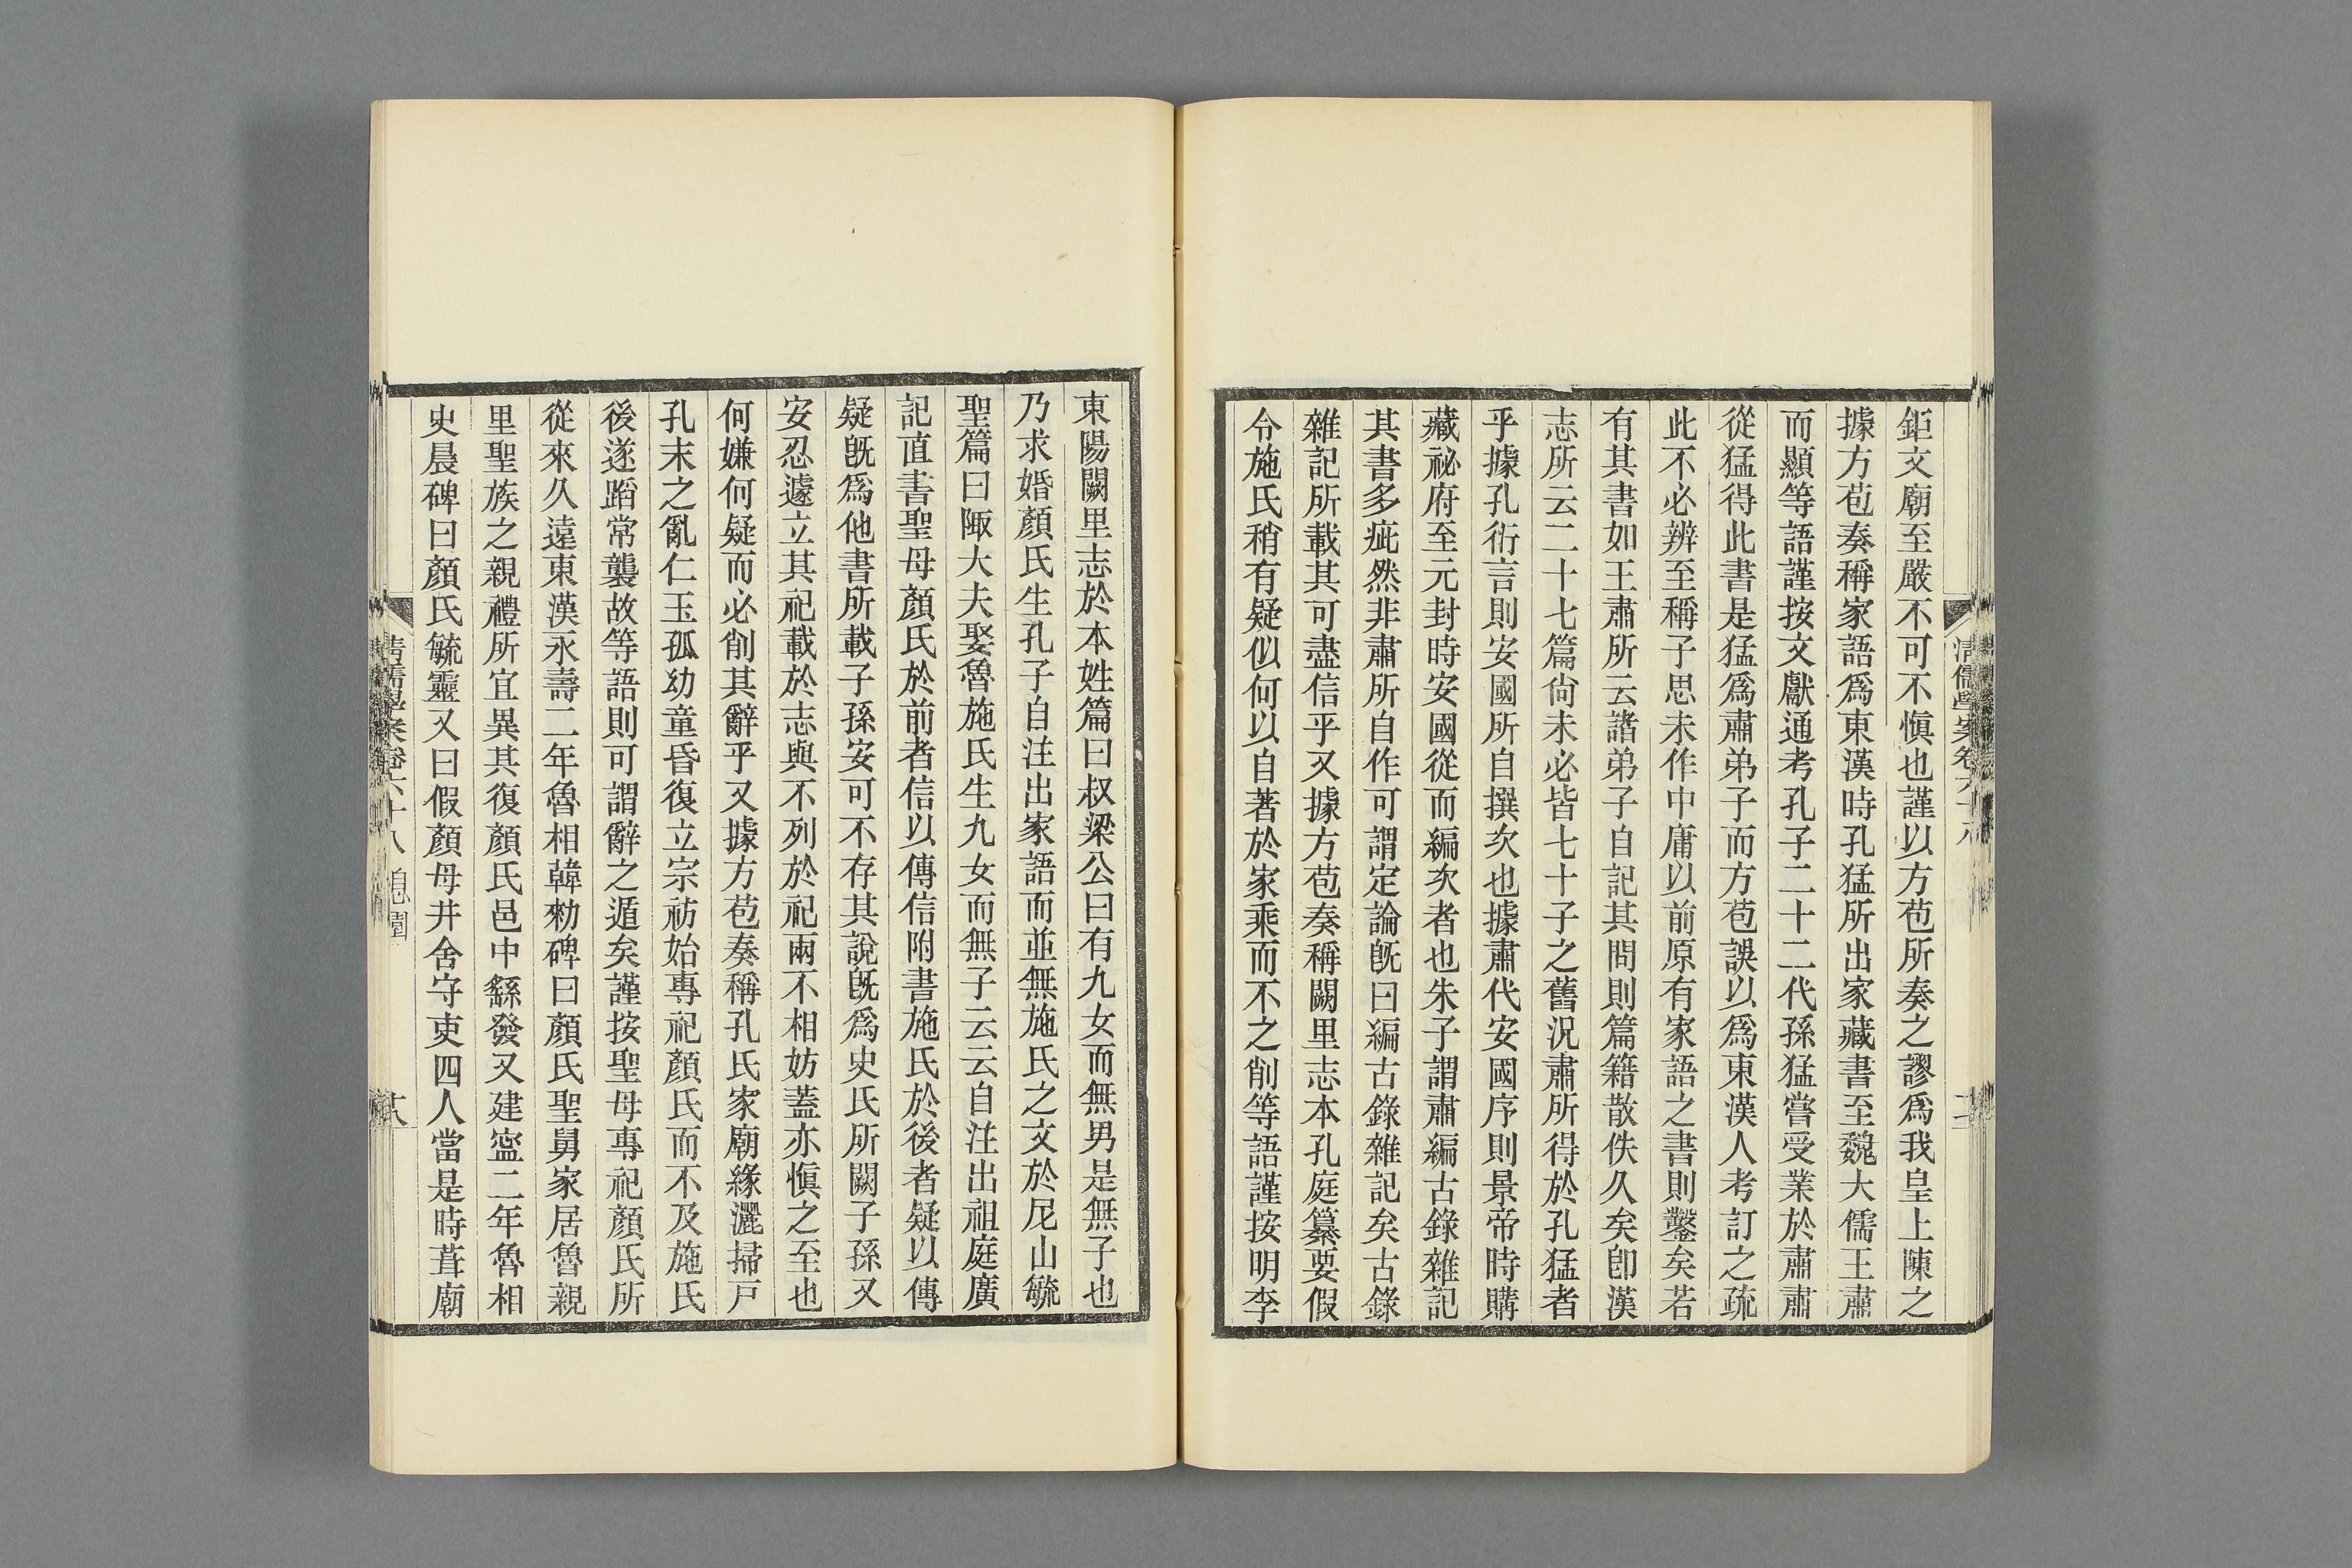 清儒學案卷六十八
鉅文廟至嚴不可不愼也謹以方苞所奏之謬爲我皇上陳之
據方苞奏稱家語爲東漢時孔猛所出家藏書至魏大儒王肅
而顯等語謹按文獻通考孔子二十二代孫猛嘗受業於肅肅
從猛得此書是猛爲肅弟子而方苞誤以爲東漢人考訂之疏
此不必辨至稱子思未作中庸以前原有家語之書則鑿矣若
有其書如王肅所云諸弟子自記其問則篇籍散佚久矣卽漢
志所云二十七篇尙未必皆七十子之舊況肅所得於孔猛者
乎據孔衍言則安國所自撰次也據肅代安國序則景帝時購
藏祕府至元封時安國從而編次者也朱子謂肅編古錄雜記
其書多疵然非肅所自作可謂定論旣曰編古錄雜記矣古錄
雜記所載其可盡信乎又據方苞奏稱闕里志本孔庭纂要假
令施氏稍有疑似何以自著於家乘而不之削等語謹按明李
東陽闕里志於本姓篇曰叔梁公曰有九女而無男是無子也
乃求婚顏氏生孔子自注出家語而並無施氏之文於尼山毓
聖篇曰陬大夫娶魯施氏生九女而無子云云自注出祖庭廣
記直書聖母顏氏於前者信以傳信附書施氏於後者疑以傳
疑旣爲他書所載子孫安可不存其說旣爲史氏所闕子孫又
安忍遽立其祀載於志與不列於祀兩不相妨蓋亦愼之至也
何嫌何疑而必削其辭乎又據方苞奏稱孔氏家廟緣灑掃戶
孔末之亂仁玉孤幼童昏復立宗祊始專祀顏氏而不及施氏
後遂蹈常襲故等語則可謂辭之遁矣謹按聖母專祀顏氏所
從來久遠東漢永壽二年魯相韓勑碑曰顏氏聖舅家居魯親
里聖族之親禮所宜異其復顏氏邑中繇發又建寧二年魯相
史晨碑曰顏氏毓靈又曰假顏母井舍守吏四人當是時葺廟
清儒學案卷六十八 息園